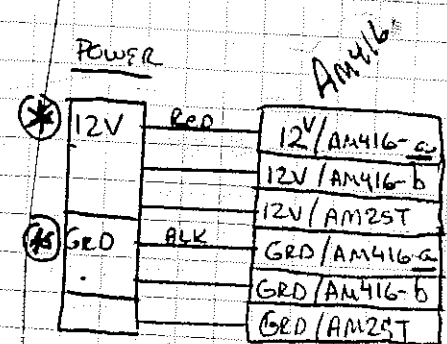 POWER
AM416
* 12V RED 12V/AM416-a
12V/AM416-b
12V/AM25T
GRD BLK GRD/AM416-a
GRD/AM416-b
GRD/AM25T